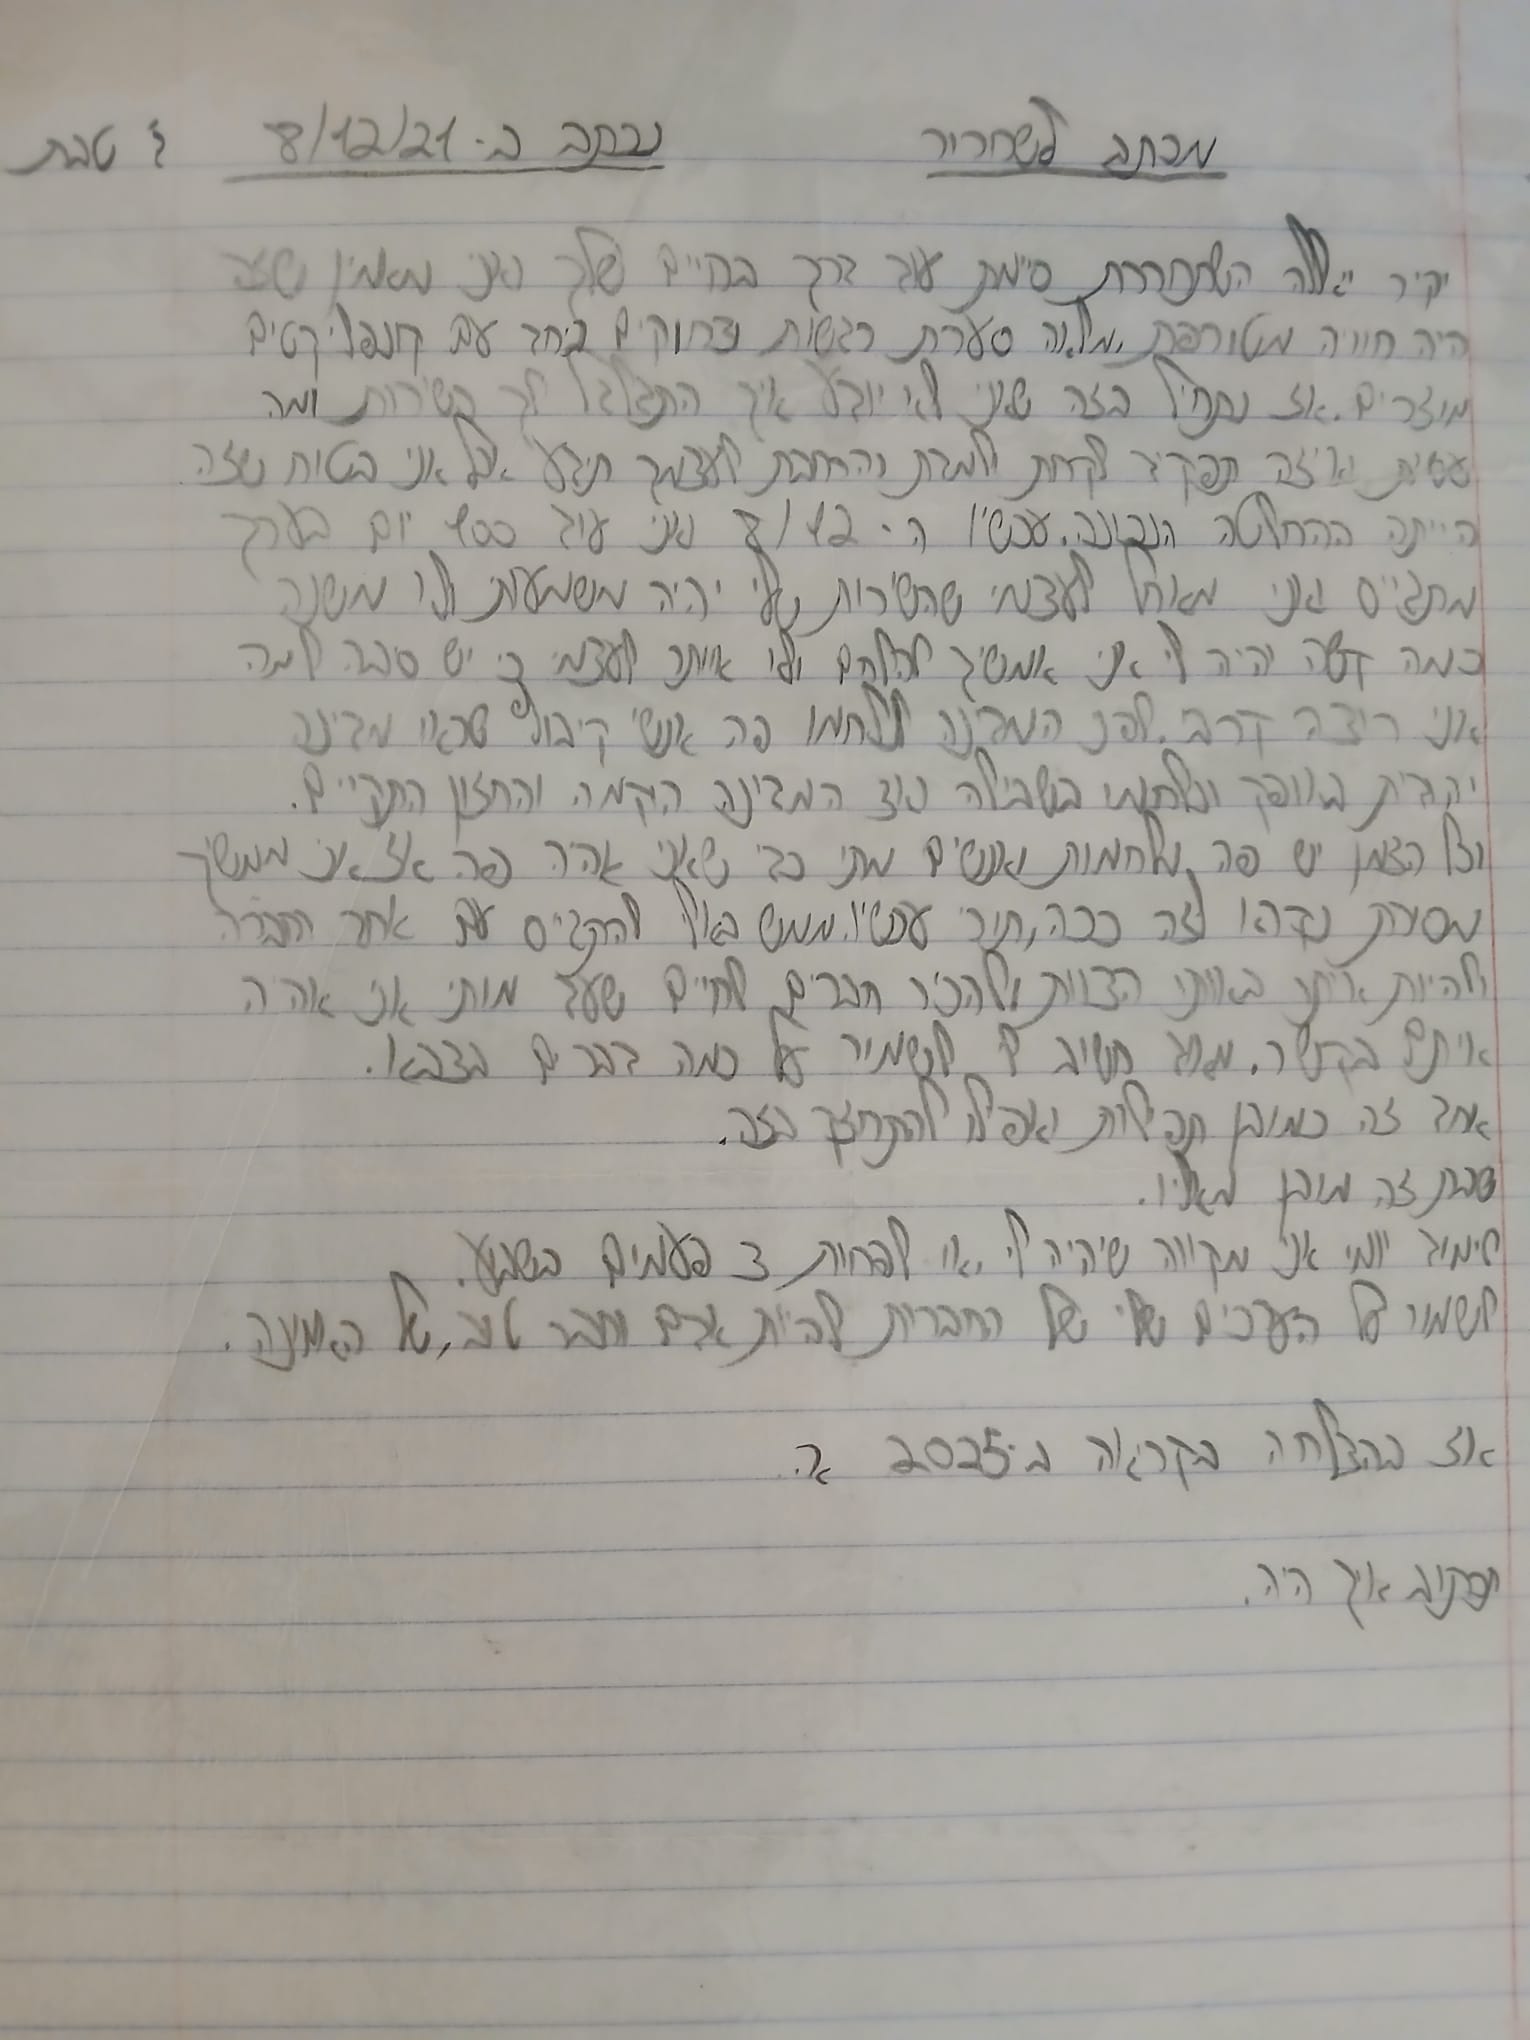 מכתב לשחרור נכתב ב- 8/12/21 ד טבת
יקיר יאללה השתחררת סיימת עוד דרך בחיים שלך ואני מאמין שזה
היה חוויה מטורפת, מלאה סערת רגשות וצחוקים ביחד עם קונפליקטים
מוצרים. אז נתחיל בזה שאני לא יודע איך התגלגל לך השירות ומה
עשית ואיזה תפקיד לקחת ולמדת והרחבת לעצמך תיגע אבל אני בטוח שזה
הייתה ההחלטה הנכונה. עכשיו ה- 8/12 ואני עוד 400 יום בערך
מתגייס ואני מאחל לעצמי שהשירות שלי יהיה משמעותי ולו משנה
כמה קשה יהיה לי אני אמשיך להילחם ולו אוותר לעצמי כי יש סיבה למה
אני רוצה קרבי. לפני המדינה נלחמו פה אנשי קיבולת שראו מדינה
יהודית באופק ונלחמו בשבילה ואז המדינה הוקמה והחזון התקיים.
וכל הזמן יש פה מלחמות ואנשים מתו כדי שאני אהיה פה אז אני ממשיך
מסורת נקרא לזה ככה, תורי עכשיו. ממש באלי להתגייס עם אחד החברה
ולהיות איתו באותו הצוות ולהכיר חברים לחיים שעד מותי אני אהיה
איתם בקשר. מאוד חשוב לי לשמור על כמה דברים בצבא.
אחד זה כמובן תפילות ואפילו להתחזק בזה.
שבת זה מובן מאליו.
לימוד יומי אני מקווה שיהיה לי, או לפחות 3 פעמים בשבוע.
לשמור על הערכים שלי של החברות להיות אדם וחבר טוב, על האמונה.
אז בהצלחה בקריאה ב-2025 אח.
תכתוב איך היה.